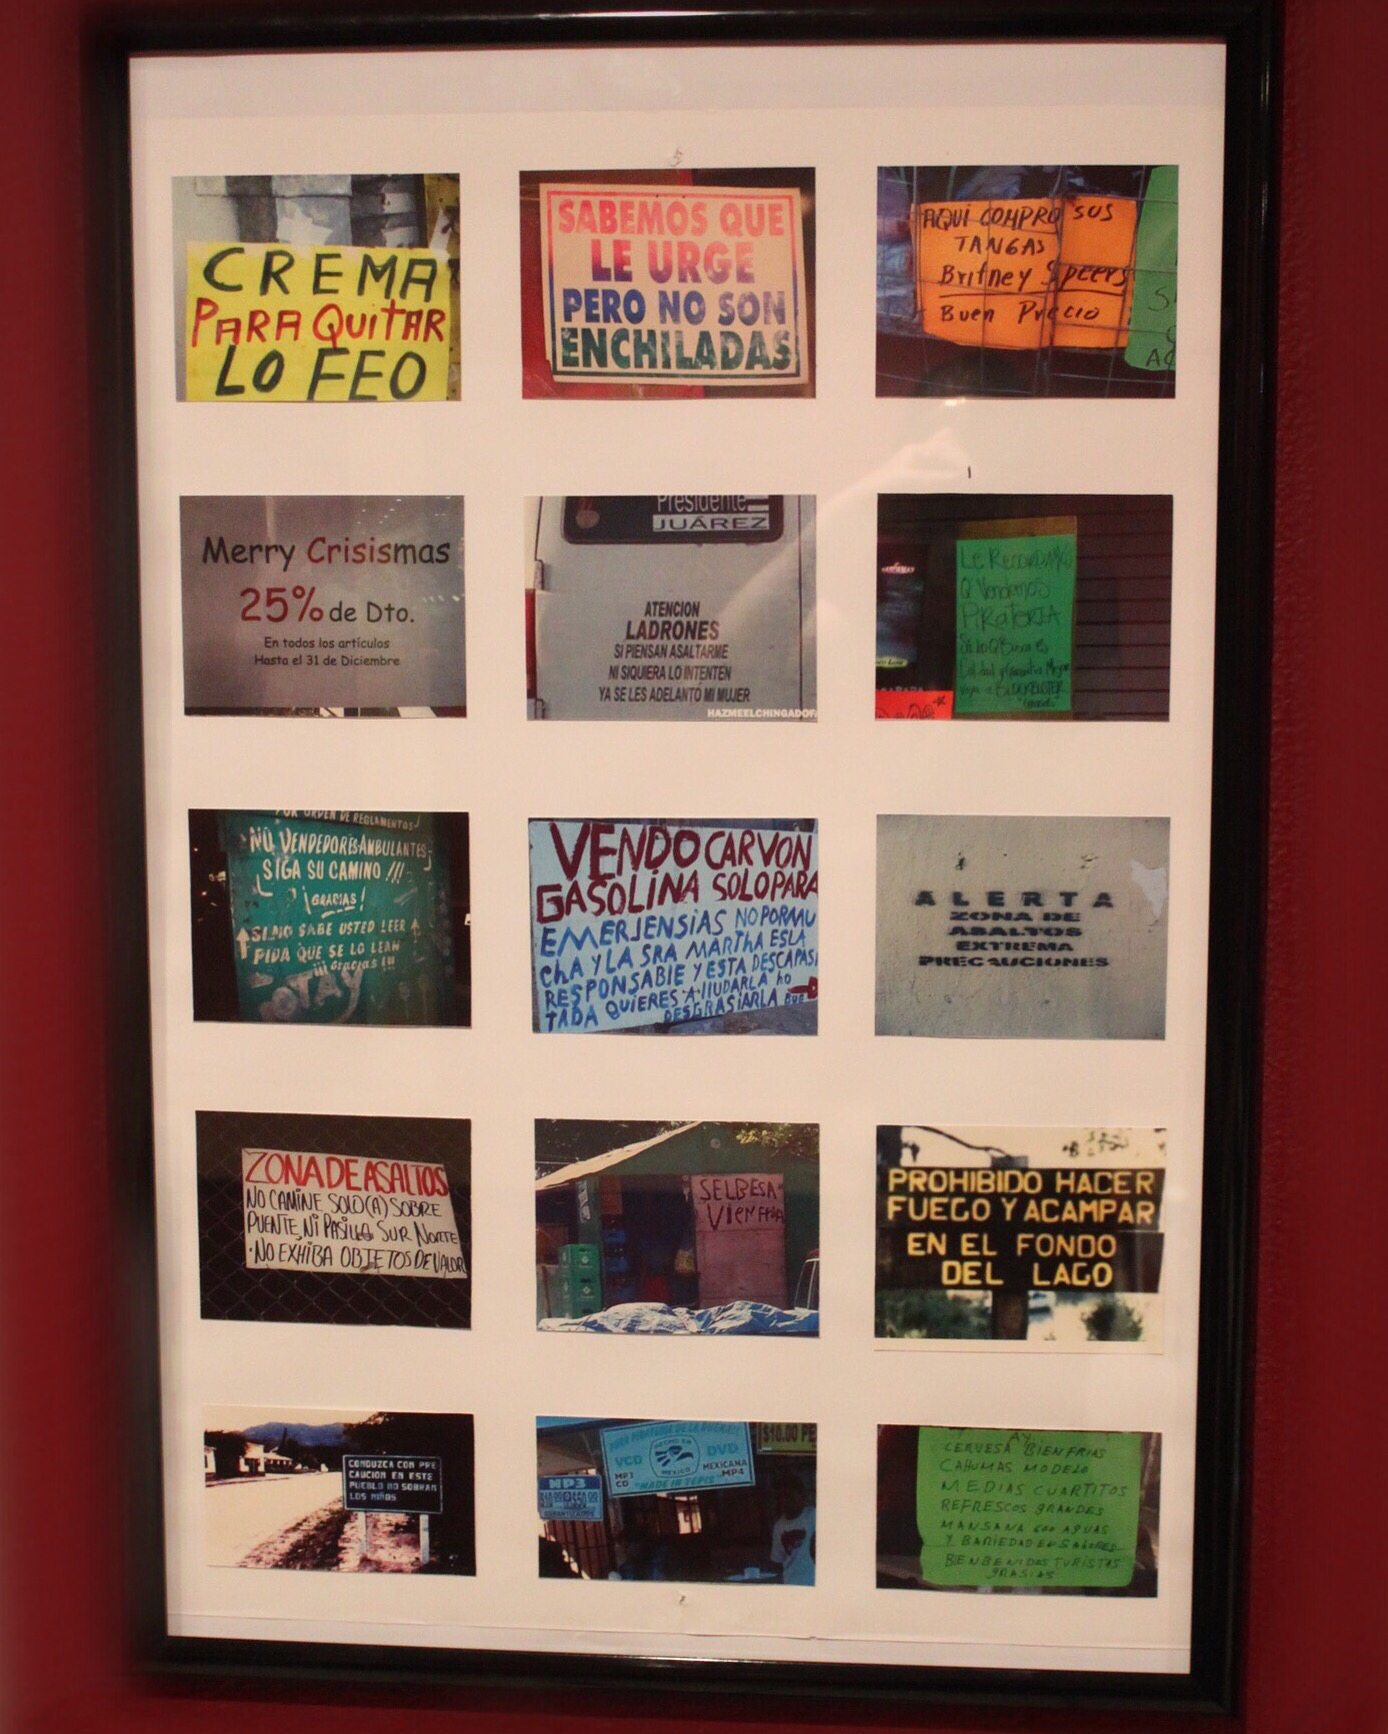 CREMA
PARA QUITAR
LO FEO
SABEMOS QUE
LE URGE
PERO NO SON
ENCHILADAS
AQUI COMPRO SUS
TANGAS
Britney Speers
Buen Precio
Merry Crisismas
25% de Dto.
En todos los artículos
Hasta el 31 de Diciembre
Presidente
JUÁREZ
ATENCION
LADRONES
SI PIENSAN ASALTARME
NI SIQUIERA LO INTENTEN
YA SE LES ADELANTO MI MUJER
HAZMEELCHINGADOF
Le Recordamos
Q Vendemos
PiRateRIA
Si lo Q Busca es
Calidad y Garantia Mejor
vaya a BLOCKBUSTER
POR ORDEN DE REGLAMENTOS
NO VENDEDORES AMBULANTES
SIGA SU CAMINO !!!
¡GRACIAS!
SI NO SABE USTED LEER
PIDA QUE SE LO LEAN
¡¡¡Gracias!!!
VENDO CARVON
GASOLINA SOLO PARA
EMERJENSIAS NO POR MU
CHA Y LA SRA MARTHA ES LA
RESPONSABLE Y ESTA DESCAPASI
TADA QUIERES A IIUDARLA NO
DESGRASIARLA QUE
ALERTA
ZONA DE
ASALTOS
EXTREMA
PRECAUCIONES
ZONA DE ASALTOS
NO CAMINE SOLO(A) SOBRE
PUENTE, NI PASILLO SUR NORTE
·NO EXHIBA OBJETOS DE VALOR
SELBESA
VIEN FRIA
PROHIBIDO HACER
FUEGO Y ACAMPAR
EN EL FONDO
DEL LAGO
CONDUZCA CON PRE
CAUCION EN ESTE
PUEBLO NO SOBRAN
LOS NIÑOS
PURA PIRATERIA DE LA BUENA!!!
$10.00 PE
VCD
HECHO EN
MEXICO
DVD
MP3
CD
MEXICANA
MP4
"MADE IN TEPIS"
MP3
AY
CERVESA BIEN FRIAS
CAHUMAS MODELO
MEDIAS CUARTITOS
REFRESCOS GRANDES
MANSANA 600 AGUAS
Y BARIEDAD EN SABORES
BIENBENIDOS TURISTAS
GRASIAS